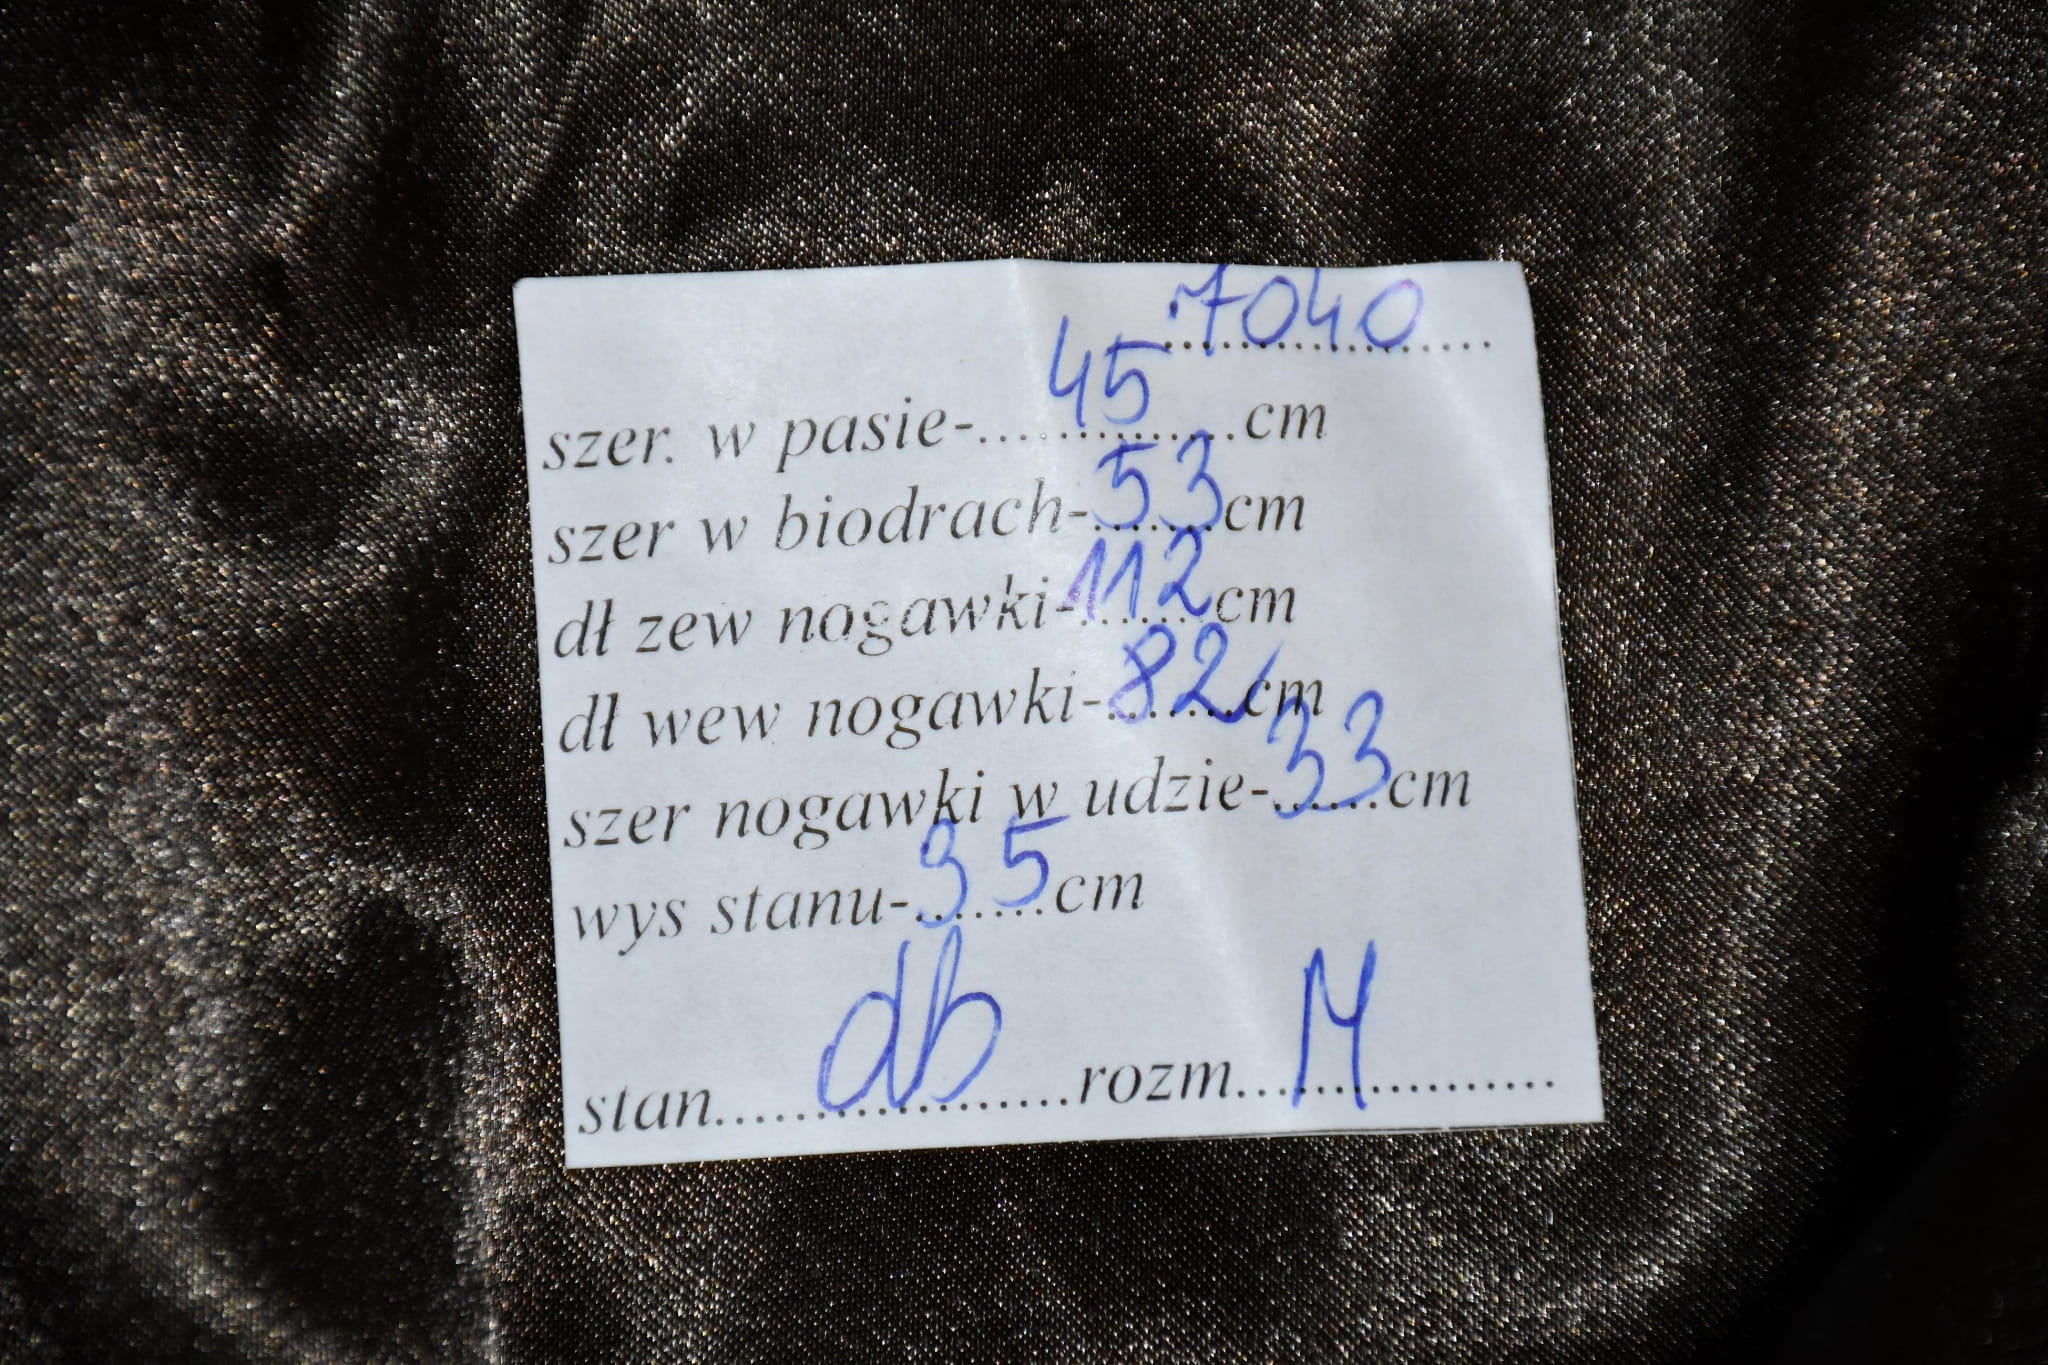 7040
szer. w pasie-....45....cm
szer w biodrach-53cm
dł zew nogawki-112cm
dł wew nogawki-82cm
szer nogawki w udzie-33cm
wys stanu-35cm
stan....db....rozm....M....